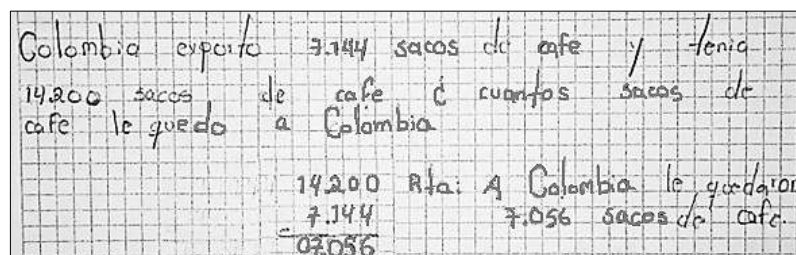 Colombia exporto 7.144 sacos de cafe y tenia
14.200 sacos de cafe ¿ cuantos sacos de
cafe le quedo a Colombia
14.200 Rta: A Colombia le quedaron
- 7.144 7.056 sacos de cafe.
07.056